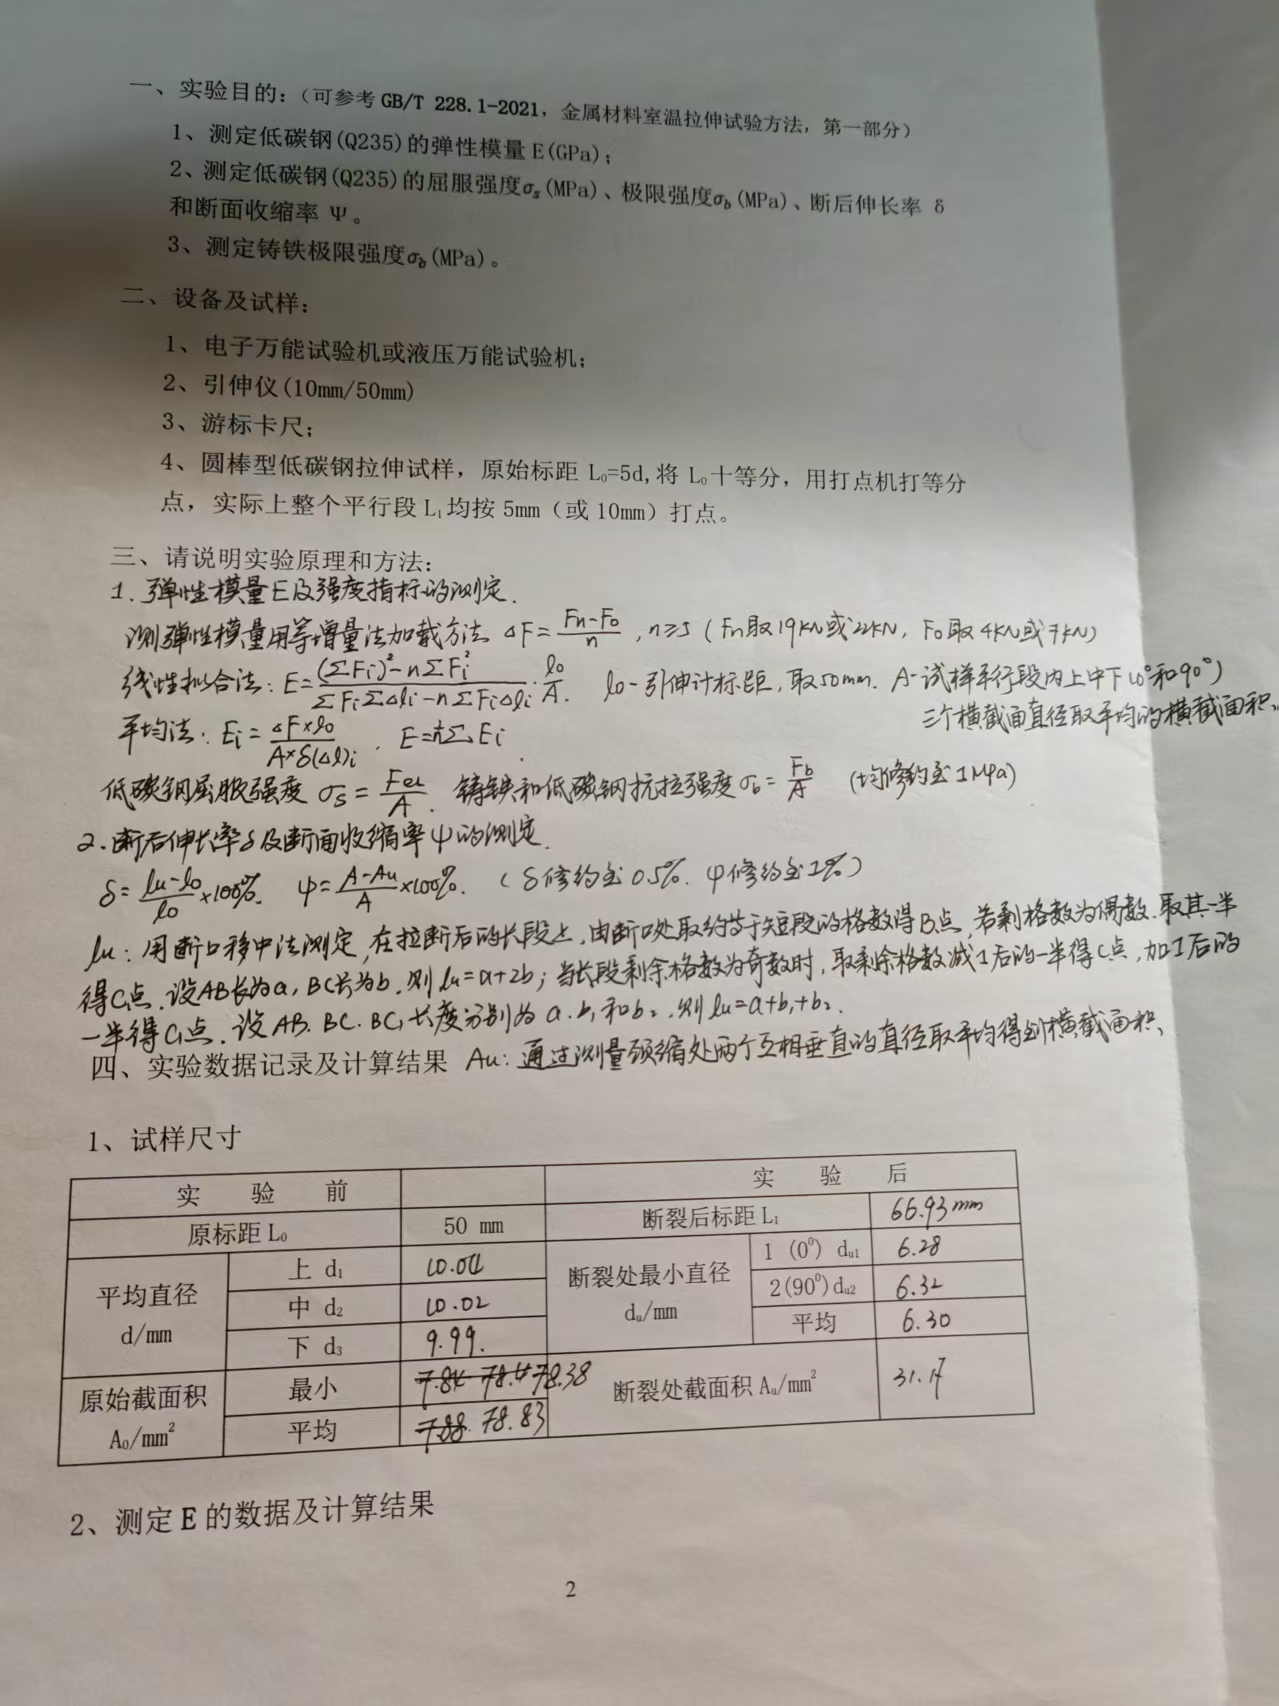 一、实验目的：（可参考 GB/T 228.1-2021，金属材料室温拉伸试验方法，第一部分）
1、测定低碳钢(Q235)的弹性模量 E(GPa)；
2、测定低碳钢(Q235)的屈服强度σs(MPa)、极限强度σb(MPa)、断后伸长率 δ
和断面收缩率 Ψ。
3、测定铸铁极限强度σb(MPa)。
二、设备及试样：
1、电子万能试验机或液压万能试验机；
2、引伸仪(10mm/50mm)
3、游标卡尺；
4、圆棒型低碳钢拉伸试样，原始标距 L₀=5d,将 L₀十等分，用打点机打等分
点，实际上整个平行段 L₁均按 5mm（或 10mm）打点。
三、请说明实验原理和方法：
1. 弹性模量E及强度指标的测定.
测弹性模量用等增量法加载方法 ΔF=(Fn-F0)/n , n≥5 (Fn取19kN或22kN, F0取4kN或7kN)
线性拟合法: E=((ΣFi)²-nΣFi²)/(ΣFiΣΔli-nΣFiΔli)·l0/A. l0-引伸计标距, 取50mm. A-试样平行段内上中下(0°和90°)
三个横截面直径取平均的横截面积.
平均法: Ei=(ΔF×l0)/(A×δ(Δl)i) . E=1/nΣEi
低碳钢屈服强度 σs=FeL/A. 铸铁和低碳钢抗拉强度σb=Fb/A (均修约至1MPa)
2. 断后伸长率δ及断面收缩率ψ的测定.
δ=(lu-l0)/l0×100%. ψ=(A-Au)/A×100%. (δ修约至0.5%. ψ修约至1%)
lu: 用断口移中法测定, 在拉断后的长段上, 由断口处取约等于短段的格数得B点, 若剩格数为偶数, 取其一半
得C点. 设AB长为a, BC长为b, 则lu=a+2b; 当长段剩余格数为奇数时, 取剩余格数减1后的一半得C点, 加1后的
一半得C₁点. 设AB. BC. BC₁长度分别为a. b₁和b₂, 则lu=a+b₁+b₂.
四、实验数据记录及计算结果 Au: 通过测量颈缩处两个互相垂直的直径取平均得到横截面积.
1、试样尺寸
实 验 前 实 验 后
原标距 L₀ 50 mm 断裂后标距 L₁ 66.93mm
平均直径 d/mm 上 d₁ 10.04 断裂处最小直径 du/mm 1 (0⁰) du1 6.28
中 d₂ 10.02 2(90⁰)du2 6.32
下 d₃ 9.99. 平均 6.30
原始截面积 A₀/mm² 最小 78.38 断裂处截面积 Au/mm² 31.17
平均 78.83
2、测定 E 的数据及计算结果
2